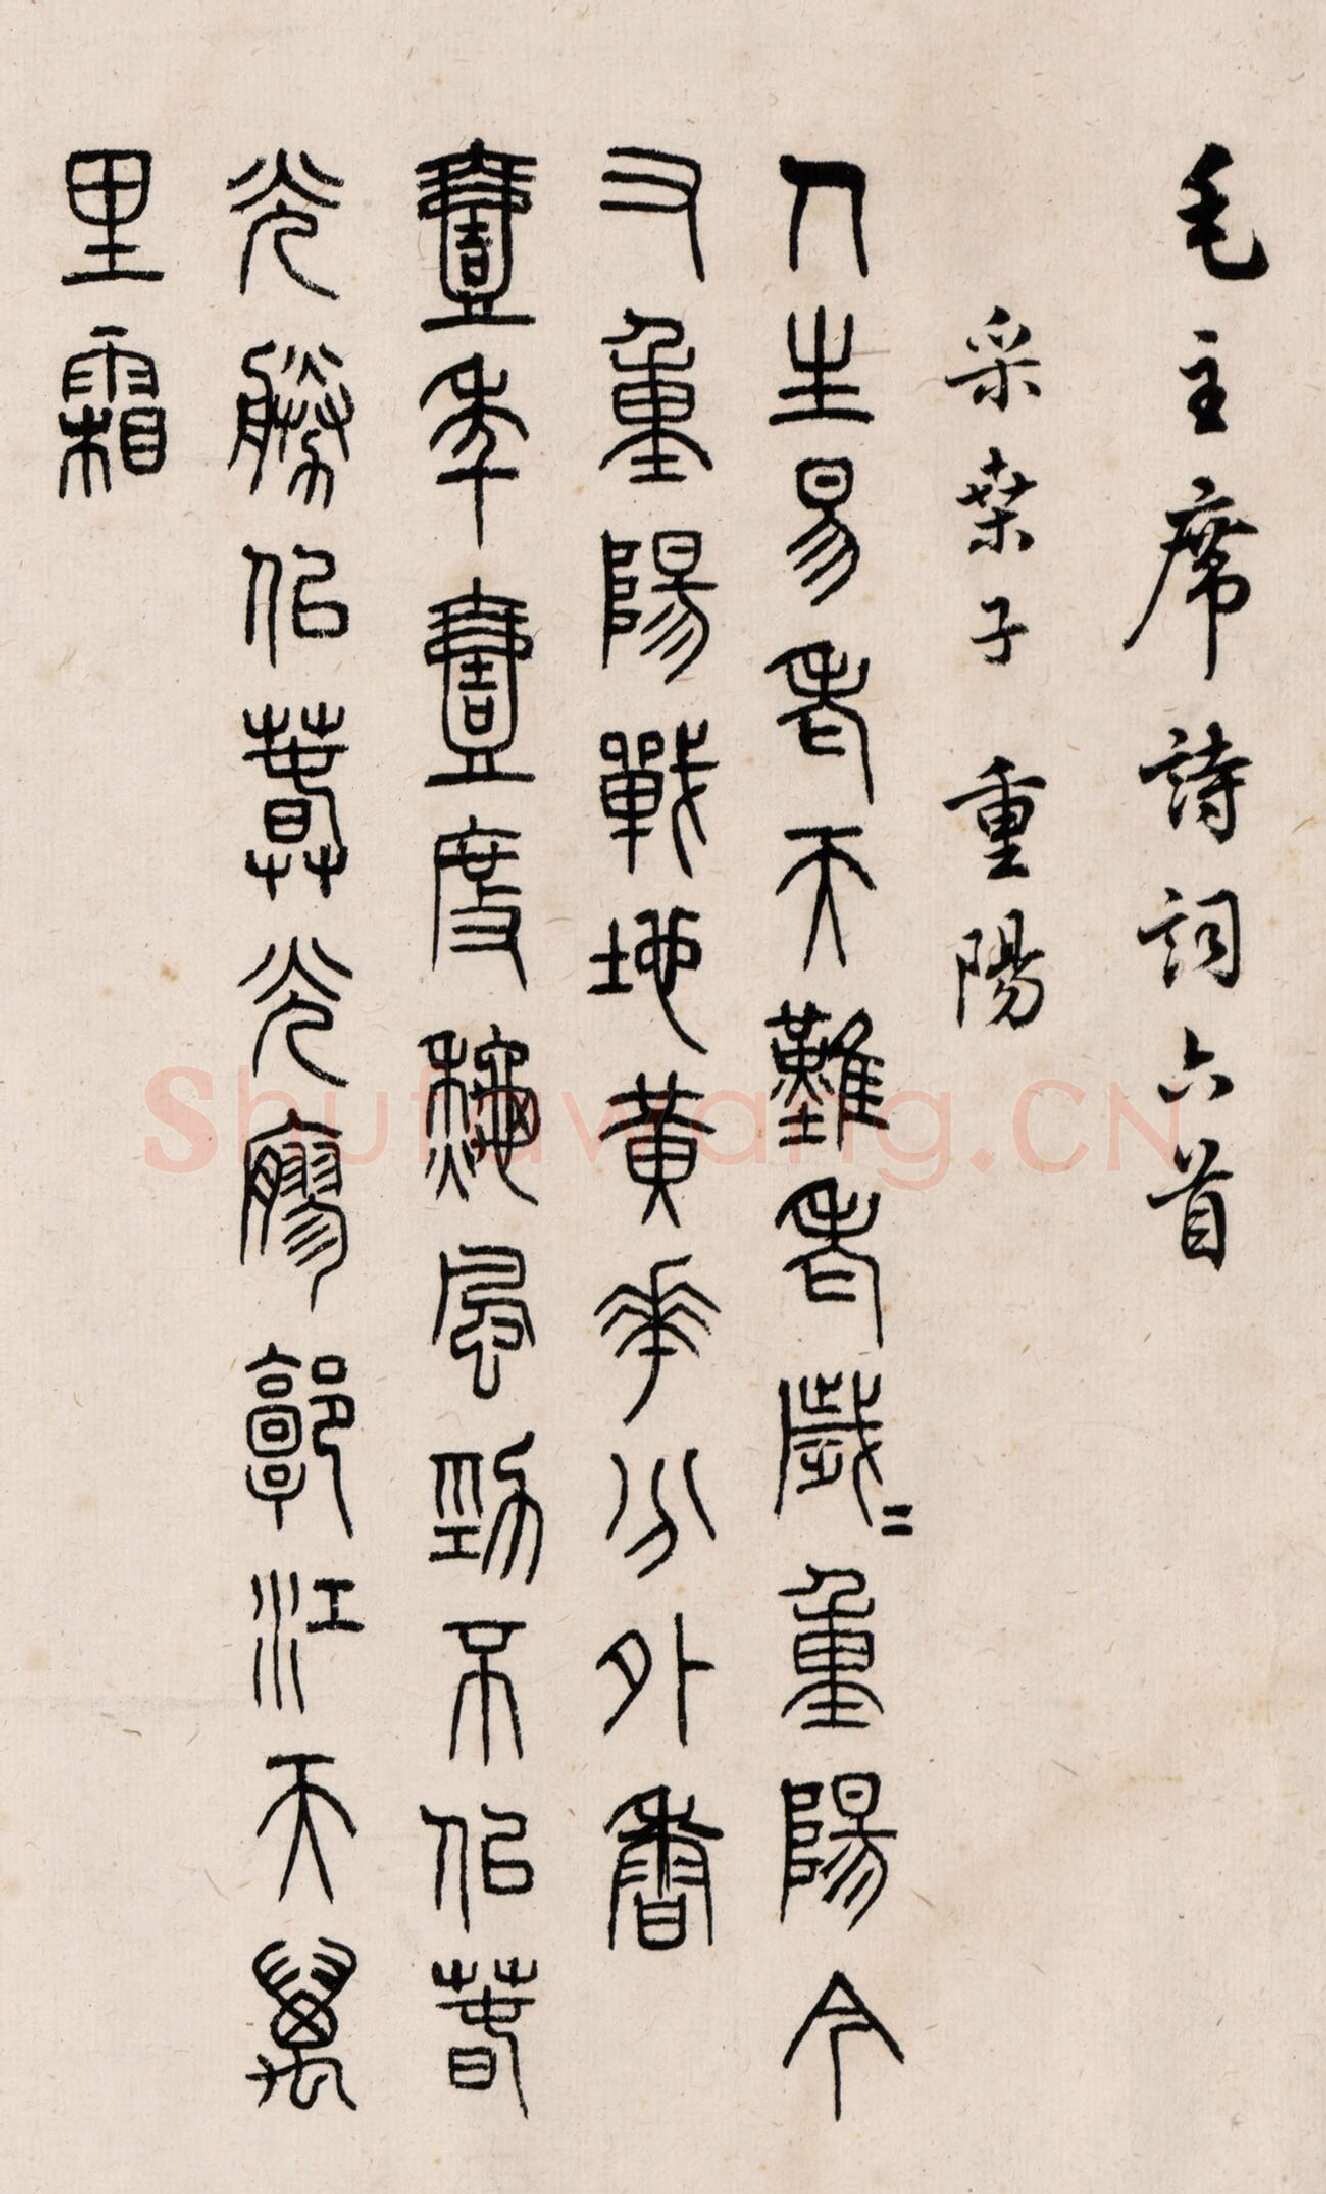 毛主席詩詞六首
采桑子 重陽
人生易老天難老歲〻重陽今
又重陽戰地黃華分外香
壹年壹度秋風勁不似春
光勝似春光寥郭江天萬
里霜
Shufawang.CN